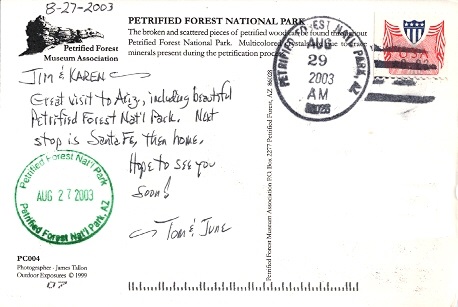 8-27-2003
Petrified Forest
Museum Association
PETRIFIED FOREST NATIONAL PARK
The broken and scattered pieces of petrified wood can be found throughout
Petrified Forest National Park. Multicolored crystals are due to trace
minerals present during the petrification process.
Jim & Karen
Great visit to Ariz, including beautiful
Petrified Forest Nat'l Park. Next
stop is Santa Fe, then home.
Hope to see you
soon!
Tom & June
Petrified Forest Nat'l Park
AUG 27 2003
Petrified Forest Nat'l Park, AZ
PC004
Photographer - James Tallon
Outdoor Exposures © 1999
07
Petrified Forest Museum Association PK1 Box 2277 Petrified Forest, AZ 86028
PETRIFIED FOREST NAT. PARK, AZ
AUG
29
2003
AM
86028
USA